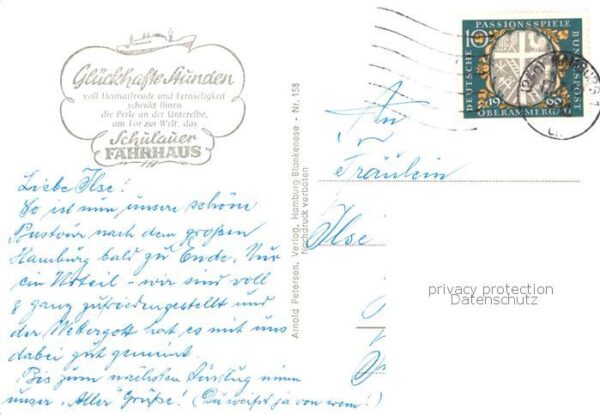 Glückhafte Stunden
voll Heimatfreude und Fernseligkeit
schenkt Ihnen
die Perle an der Unterelbe,
am Tor zur Welt, das
Schulauer
FÄHRHAUS
Liebe Ilse!
So ist nun unsere schöne
Bustour nach dem großen
Hamburg bald zu Ende. Nur
ein Urteil - wir sind voll
& ganz zufriedengestellt und
der Wettergott hat es mit uns
dabei gut gemeint.
Bis zum nächsten Ausflug nimm
unser "Aller" Grüße! (Du weißt ja von wem!)
Arnold Petersen, Verlag, Hamburg-Blankenese - Nr. 158
Nachdruck verboten
An
Fräulein
Ilse
DEUTSCHE
PASSIONSSPIELE
BUNDESPOST
10
1960
OBERAMMERGAU
privacy protection
Datenschutz